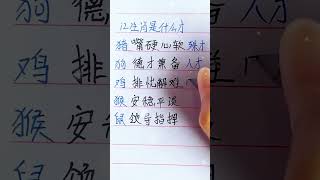 12生肖是什么才
猪嘴硬心软殊才
狗德才兼备人才
鸡排忧解难
猴安稳平淡
鼠领导指挥